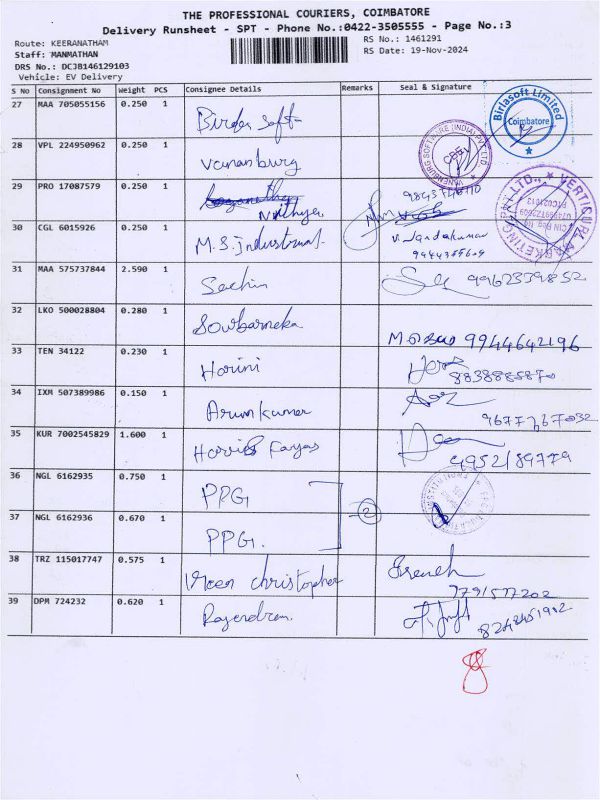 THE PROFESSIONAL COURIERS, COIMBATORE
Delivery Runsheet - SPT - Phone No.:0422-3505555 - Page No.:3
Route: KEERANATHAM
RS No.: 1461291
Staff: MANMATHAN
RS Date: 19-Nov-2024
DRS No.: DC3B146129103
Vehicle: EV Delivery
S No Consignment No Weight PCS Consignee Details Remarks Seal & Signature
27 MAA 705055156 0.250 1 Birla Soft
Birlasoft Limited
Coimbatore
28 VPL 224950962 0.250 1 Vananburg
VANENBURG SOFTWARE (INDIA) PVT LTD
CBE
29 PRO 17087579 0.250 1 Nithya
VERTICURL MARKETING PVT LTD.,
30 CGL 6015926 0.250 1 M.S. Industrial
V. Nandakumar
31 MAA 575737844 2.590 1 Sachin 9962339852
32 LKO 500028804 0.280 1 Sowbarneka 9944642196
33 TEN 34122 0.230 1 Harini
34 IXM 507389986 0.150 1 Arumkumar
35 KUR 7002545829 1.600 1 Fayas
36 NGL 6162935 0.750 1 PPG
2
37 NGL 6162936 0.670 1 PPG.
38 TRZ 115017747 0.575 1 christopher
7791577202
39 DPM 724232 0.620 1 Rajendran.